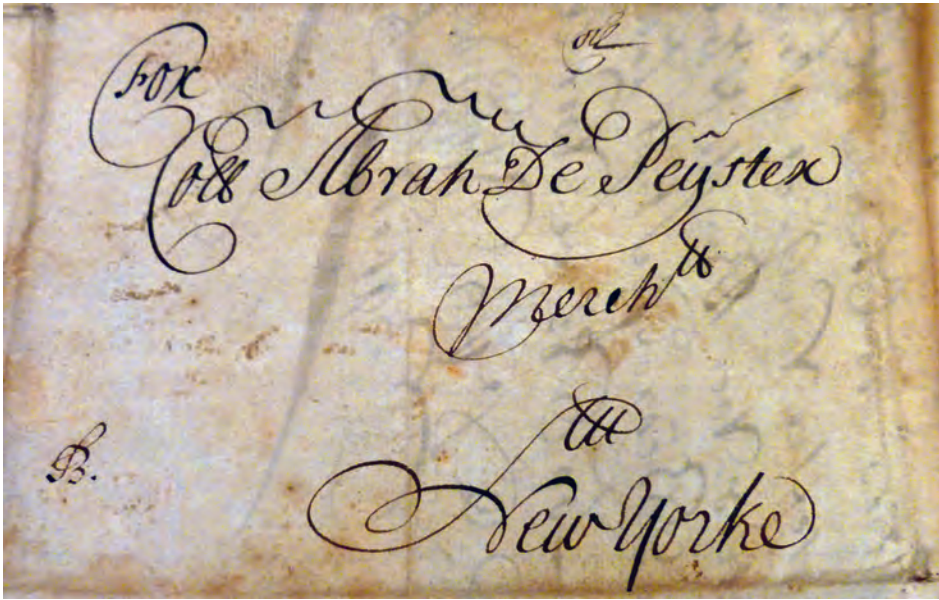 For
Coll Abrah De Peyster
Mercht
Att
New Yorke
B.